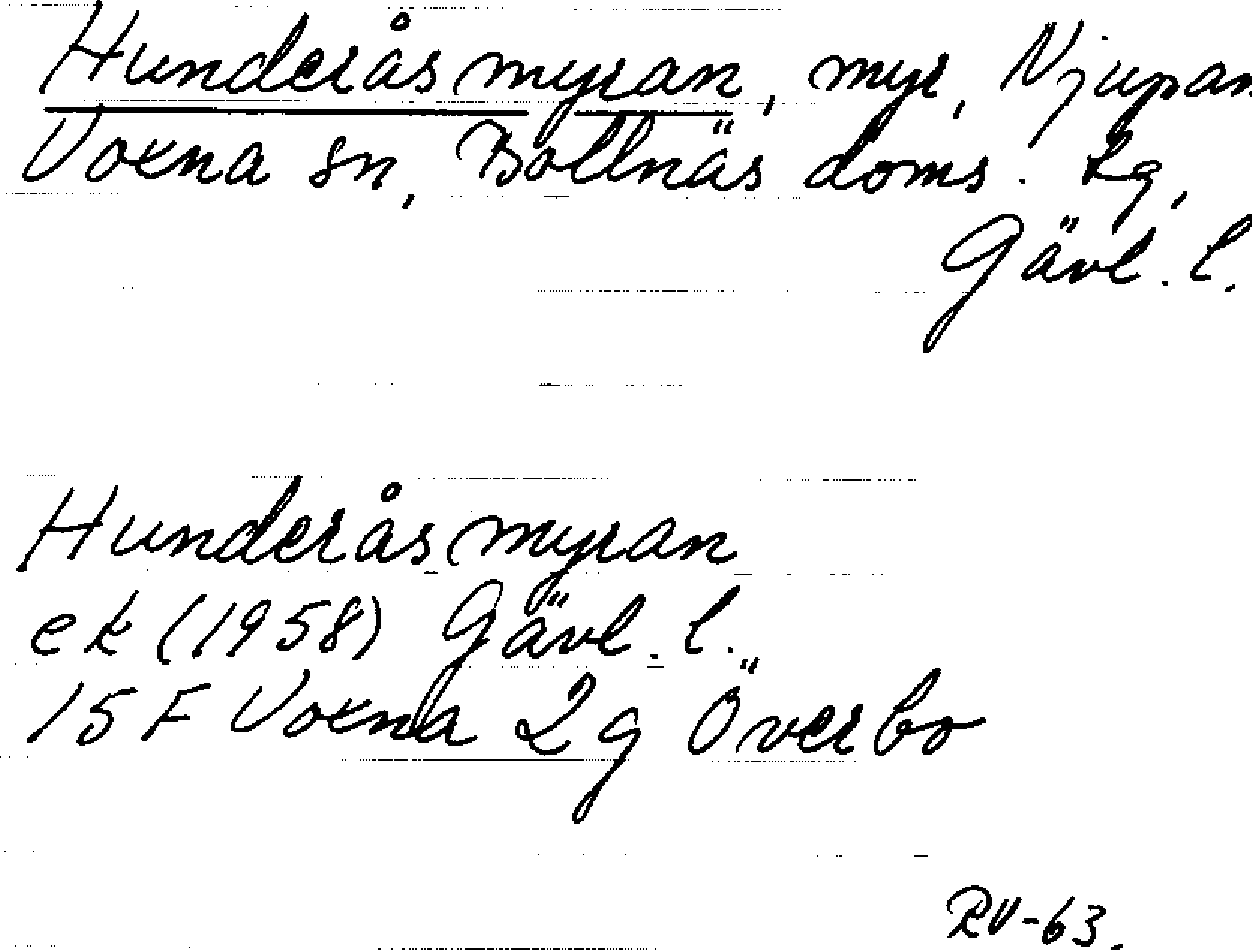 Hunderåsmyran, myr, Njupan
Voxna sn, Bollnäs doms. lg,
Gävl. l.
Hunderåsmyran
ek (1958) Gävl. l.
15 F Voxna 2 g Överbo
RV-63.